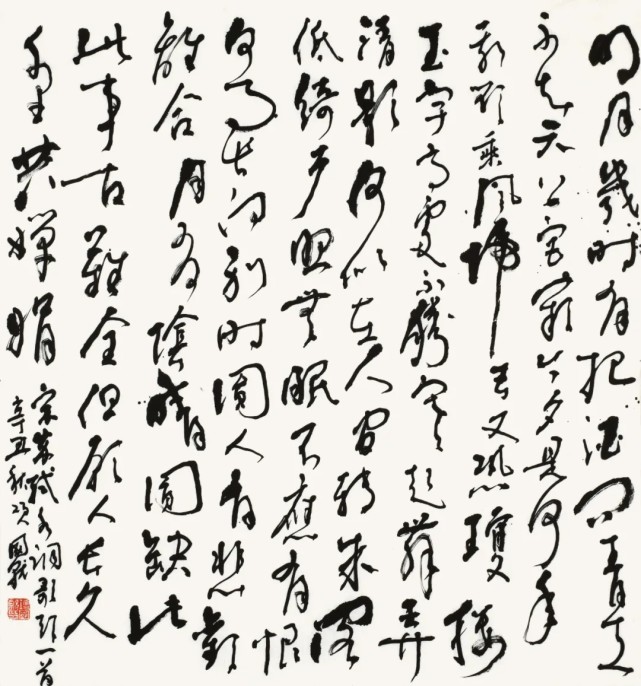 明月幾时有把酒问青天
不知天上宫阙今夕是何年
我欲乘風歸去又恐瓊樓
玉宇高處不勝寒起舞弄
清影何似在人间转朱阁
低綺户照無眠不應有恨
何事长向别时圓人有悲歡
離合月有陰晴圓缺此
此事古難全但願人长久
千里共嬋娟
宋苏轼水调歌头一首
辛丑秋项國